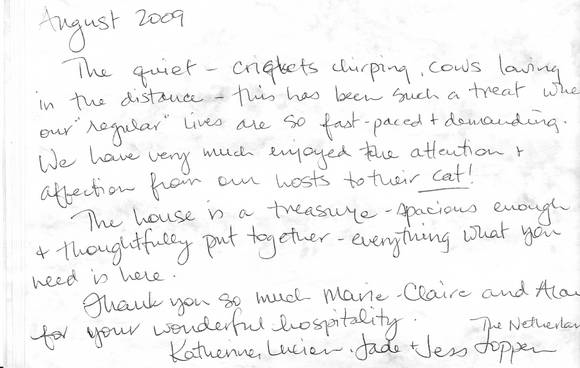 August 2009
The quiet - crickets chirping, cows lowing
in the distance - this has been such a treat whe
our "regular" lives are so fast-paced + demanding.
We have very much enjoyed the attention +
affection from our hosts to their cat!
The house is a treasure - spacious enough
+ thoughtfully put together - everything what you
need is here.
Thank you so much Marie-Claire and Ala
for your wonderful hospitality.
The Netherlan
Katherine, Lucien, Jade + Jess